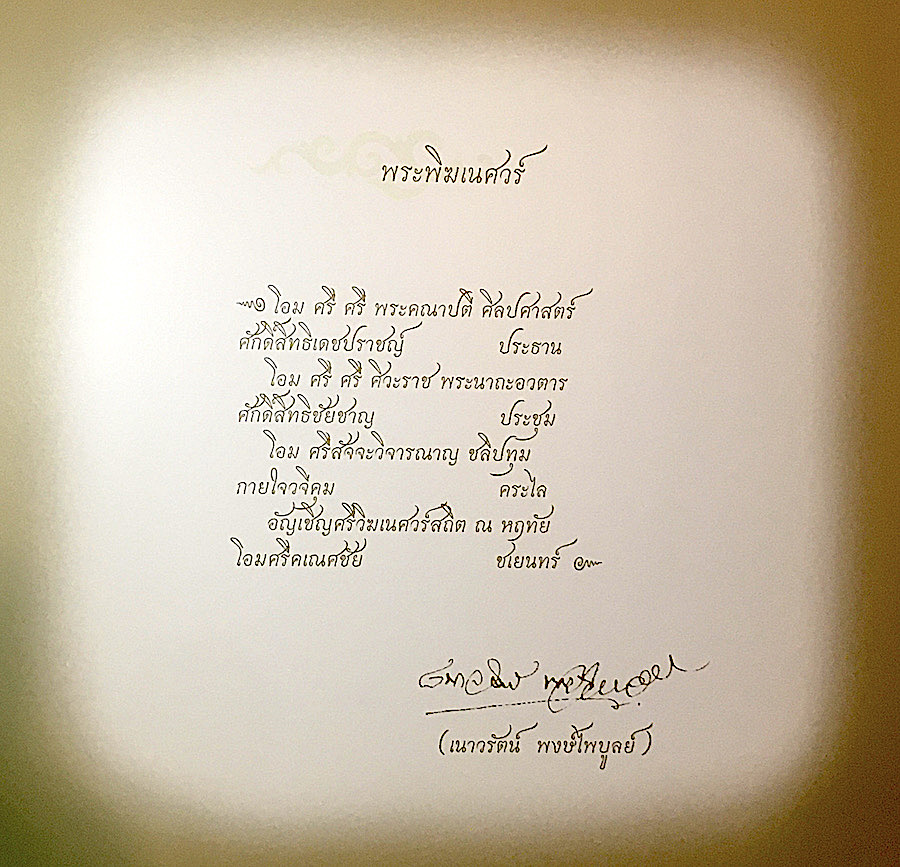 พระพิฆเนศวร์
๛๑ โอม ศรี ศรี พระคณาปตี ศิลปศาสตร์
ศักดิ์สิทธิเดชปราชญ์ ประธาน
โอม ศรี ศรี ศิวะราช พระนาถะอวตาร
ศักดิ์สิทธิชัยชาญ ประชุม
โอม ศรีสัจจะวิจารณาญ ชลิปทุม
กายใจวจีคุม คระไล
อัญเชิญศรีวิฆเนศวร์สถิต ณ หฤทัย
โอมศรีคเณศชัย ชเยนทร์ ๛
เนาวรัตน์ พงษ์ไพบูลย์
(เนาวรัตน์ พงษ์ไพบูลย์)